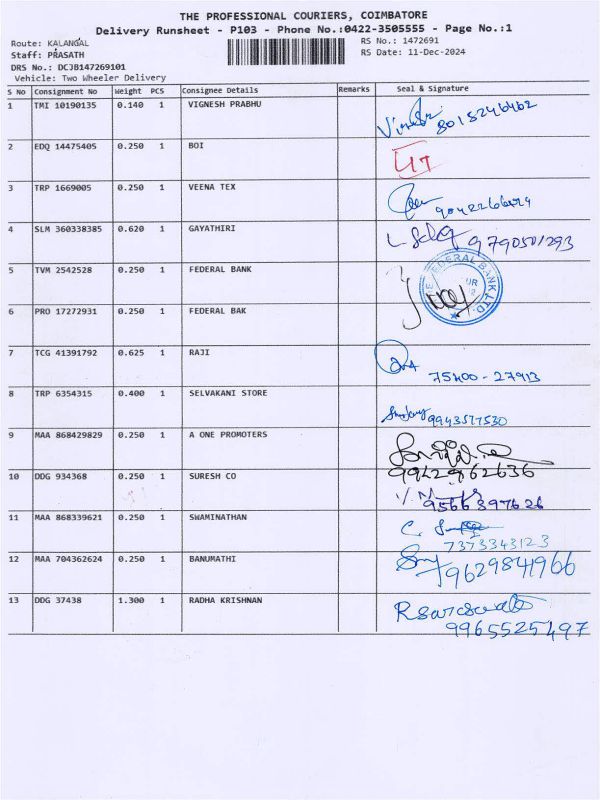 THE PROFESSIONAL COURIERS, COIMBATORE
Delivery Runsheet - P103 - Phone No.:0422-3505555 - Page No.:1
Route: KALANGAL RS No.: 1472691
Staff: PRASATH RS Date: 11-Dec-2024
DRS No.: DCJB147269101
Vehicle: Two Wheeler Delivery
S No Consignment No Weight PCS Consignee Details Remarks Seal & Signature
1 TMI 10190135 0.140 1 VIGNESH PRABHU 8015246462
2 EDQ 14475405 0.250 1 BOI
3 TRP 1669005 0.250 1 VEENA TEX
4 SLM 360338385 0.620 1 GAYATHIRI 9790501293
5 TVM 2542528 0.250 1 FEDERAL BANK FEDERAL BANK LTD.
6 PRO 17272931 0.250 1 FEDERAL BAK
7 TCG 41391792 0.625 1 RAJI 75400-27913
8 TRP 6354315 0.400 1 SELVAKANI STORE 9943577530
9 MAA 868429829 0.250 1 A ONE PROMOTERS 9942962636
10 DDG 934368 0.250 1 SURESH CO 9566397626
11 MAA 868339621 0.250 1 SWAMINATHAN 7373343123
12 MAA 704362624 0.250 1 BANUMATHI 9629841966
13 DDG 37438 1.300 1 RADHA KRISHNAN 9965525497